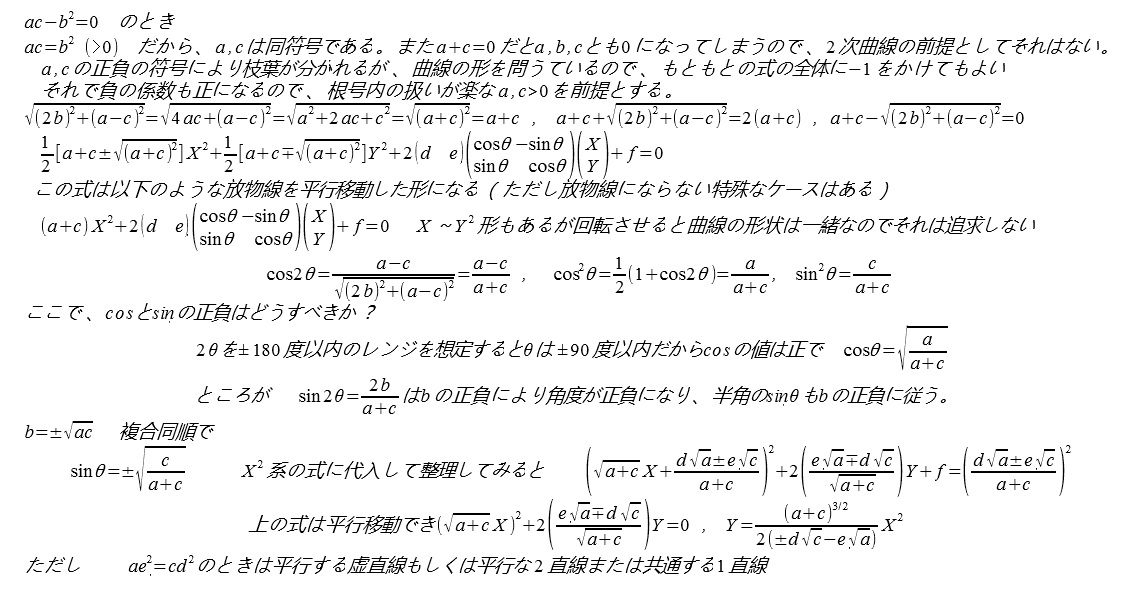 ac−b²=0　のとき
ac=b² (>0)　だから、a,cは同符号である。またa+c=0だとa,b,cとも0になってしまうので、2次曲線の前提としてそれはない。
a,cの正負の符号により枝葉が分かれるが、曲線の形を問うているので、もともとの式の全体に−1をかけてもよい
それで負の係数も正になるので、根号内の扱いが楽なa,c>0を前提とする。
√((2b)²+(a−c)²)=√(4ac+(a−c)²)=√(a²+2ac+c²)=√((a+c)²)=a+c , a+c+√((2b)²+(a−c)²)=2(a+c) , a+c−√((2b)²+(a−c)²)=0
1/2[a+c±√((a+c)²)]X²+1/2[a+c∓√((a+c)²)]Y²+2(d e)(cosθ −sinθ sinθ cosθ)(X Y)+f=0
この式は以下のような放物線を平行移動した形になる(ただし放物線にならない特殊なケースはある)
(a+c)X²+2(d e)(cosθ −sinθ sinθ cosθ)(X Y)+f=0　X ~Y²形もあるが回転させると曲線の形状は一緒なのでそれは追求しない
cos2θ=(a−c)/√((2b)²+(a−c)²)=(a−c)/(a+c) , cos²θ=1/2(1+cos2θ)=a/(a+c), sin²θ=c/(a+c)
ここで、cosとsinの正負はどうすべきか？
2θを±180度以内のレンジを想定するとθは±90度以内だからcosの値は正で　cosθ=√(a/(a+c))
ところが　sin2θ=2b/(a+c)はbの正負により角度が正負になり、半角のsinθもbの正負に従う。
b=±√ac　複合同順で
sinθ=±√(c/(a+c))　X²系の式に代入して整理してみると　(√(a+c)X+(d√a±e√c)/(a+c))²+2((e√a∓d√c)/√(a+c))Y+f=((d√a±e√c)/(a+c))²
上の式は平行移動でき(√(a+c)X)²+2((e√a∓d√c)/√(a+c))Y=0 , Y=(a+c)^(3/2)/(2(±d√c−e√a))X²
ただし　ae²=cd²のときは平行する虚直線もしくは平行な2直線または共通する1直線